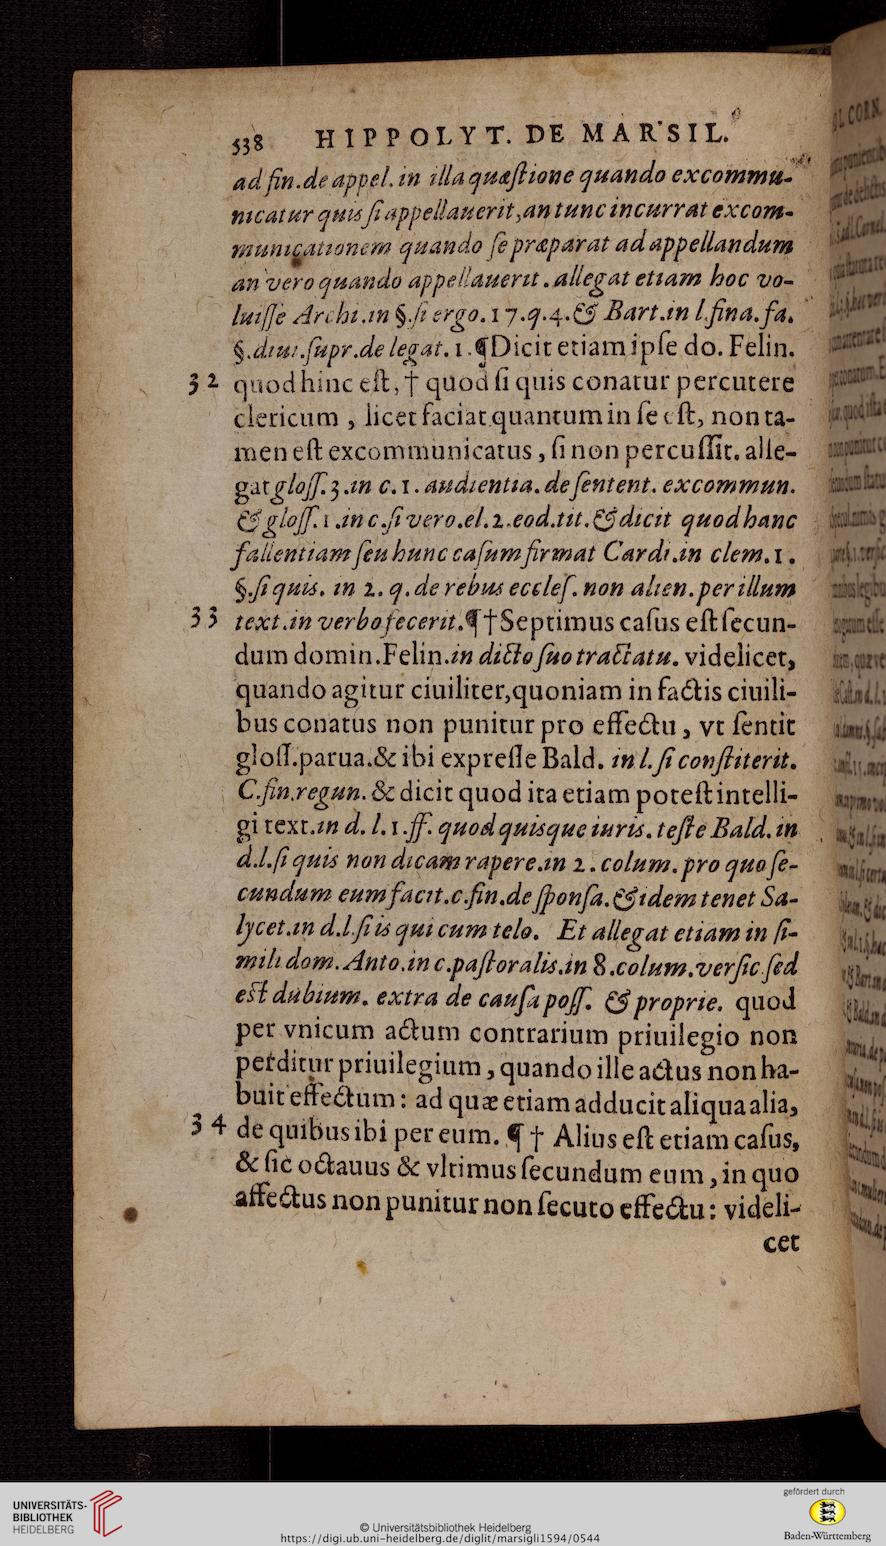 538 HIPPOLYT. DE MARSIL.
ad fin.de appel.in illa quæſtione quando excommu-
nicatur quis ſi appellauerit,an tunc incurrat excom-
municationem quando ſe præparat ad appellandum
an vero quando appellauerit.allegat etiam hoc vo-
luiſſe Archi.in §.ſi ergo.17.q.4.& Bart.in l.fina.fa.
§.diui.ſupr.de legat.1.¶Dicit etiam ipſe do.Felin.
32 quod hinc eſt,† quod ſi quis conatur percutere
clericum , licet faciat quantum in ſe eſt, non ta-
men eſt excommunicatus , ſi non percuſſit. alle-
gat gloſſ.3.in c.1.audientia.de ſentent.excommun.
& gloſſ.1.in c.ſi vero.el.2.eod.tit.& dicit quod hanc
fallentiam ſeu hunc caſum firmat Cardi.in clem.1.
§.ſi quis. in 2. q.de rebus eccleſ.non alien.per illum
33 text.in verbo fecerit.¶†Septimus caſus eſt ſecun-
dum domin.Felin.in dicto ſuo tractatu. videlicet,
quando agitur ciuiliter,quoniam in factis ciuili-
bus conatus non punitur pro effectu , vt ſentit
gloſſ.parua.& ibi expreſſe Bald. in l.ſi confliterit.
C.fin.regun. & dicit quod ita etiam poteſt intelli-
gi text.in d.l.1.ff. quod quisque iuris.teſte Bald.in
d.l.ſi quis non dicam rapere.in 2.colum.pro quo ſe-
cundum eum facit.c.fin.de ſponſa.& idem tenet Sa-
lycet.in d.l.ſi is qui cum telo. Et allegat etiam in ſi-
mili dom.Anto.in c.paſtoralis.in 8.colum.verſic.ſed
eſt dubium. extra de cauſa poſſ. & proprie. quod
per vnicum actum contrarium priuilegio non
perditur priuilegium , quando ille actus non ha-
buit effectum : ad quæ etiam adducit aliqua alia,
34 de quibus ibi per eum. ¶ † Alius eſt etiam caſus,
& ſic octauus & vltimus ſecundum eum , in quo
affectus non punitur non ſecuto effectu : videli-
cet
UNIVERSITÄTS-
BIBLIOTHEK
HEIDELBERG
© Universitätsbibliothek Heidelberg
https://digi.ub.uni-heidelberg.de/diglit/marsigli1594/0544
gefördert durch
Baden-Württemberg